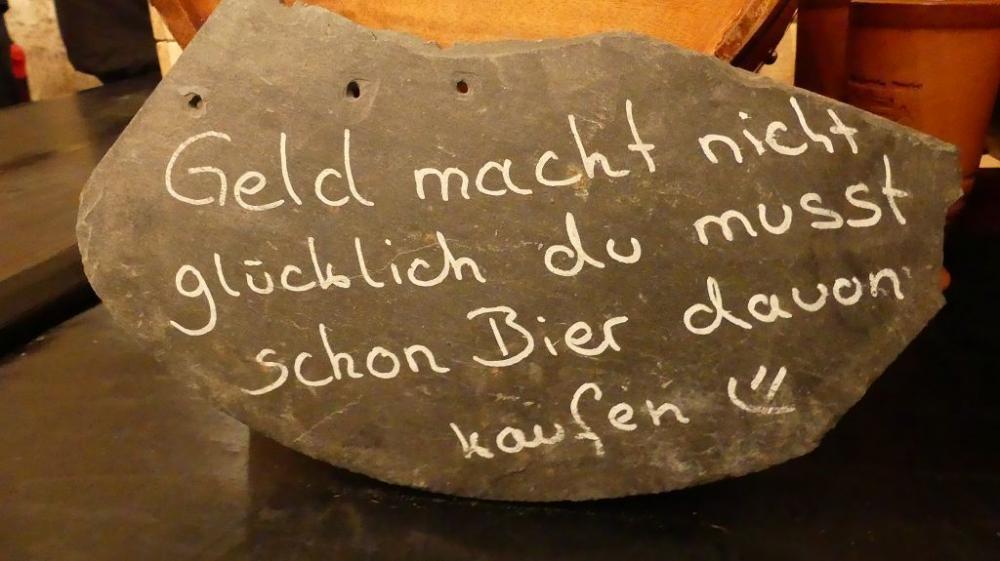 Geld macht nicht
glücklich du musst
schon Bier davon
kaufen